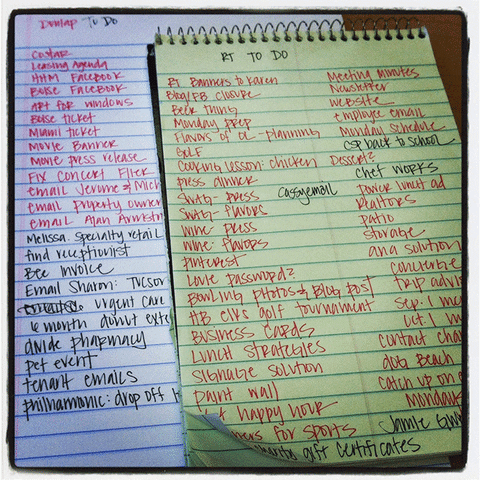 Dunlap TO DO
COSTAR
Leasing Agenda
HHM FACEBOOK
BOISE FACEBOOK
ART FOR WINDOWS
BOISE TICKET
Miami TICKET
MOVIE BANNER
MOVIE press release
FIX CONCERT FLIER
email Jerome & Mich
email property owner
email Alan Armstr
Melissa: specialty retail
find receptionist
Bee invoice
Email Sharon: Tucson
urgent care
6 month donut exte
divide pharmacy
pet event
tenant emails
philharmonic: drop off
RT TO DO
RT Banners to Karen
Blog/FB closure
Beer thing
Monday prep
Flavors of OC - planning
GOLF
Cooking lesson: chicken
press dinner
Swag - press
Swag - flavors
wine press
wine flavors
PINTEREST
Love password?
Bowling photos & Blog post
HB elks golf tournament
BUSINESS CARDS
LUNCH STRATEGIES
SIGNAGE SOLUTION
paint wall
happy hour
for sports
gift certificates
cassyemail
Meeting minutes
Newsletter
website
employee email
Monday schedule
CSP back to school
Dessert?
chef works
panier lunch ad
Realtors
patio
storage
ana solution
concierge
trip advis
Sep. 1 me
Oct 1 m
contact cha
dog Beach
catch up on
Mondav
Jamie Gw